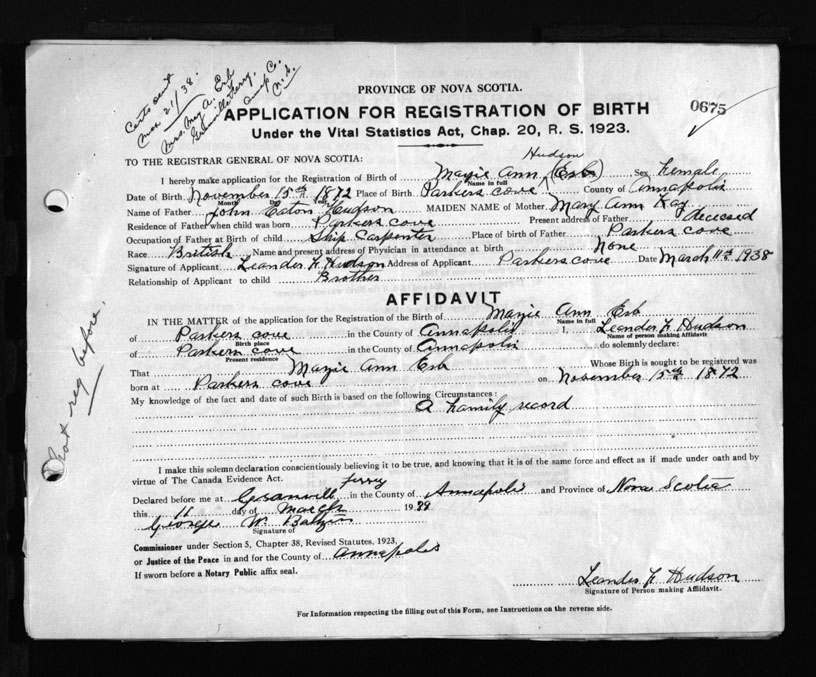 Certs sent
Mar 21/38.
Mrs. May A. Erb
Granville Ferry,
Anap Co.
N.S.
PROVINCE OF NOVA SCOTIA.
APPLICATION FOR REGISTRATION OF BIRTH
0675
Under the Vital Statistics Act, Chap. 20, R. S. 1923.
TO THE REGISTRAR GENERAL OF NOVA SCOTIA:
Hudson
I hereby make application for the Registration of Birth of Mayie Ann (Erb) Sex Female
Name in full
Date of Birth November 15th 1872 Place of Birth Parkers cove County of Annapolis
Month
Name of Father John Eaton Hudson MAIDEN NAME of Mother Mary Ann Kay
Residence of Father when child was born Parkers cove Present address of Father dececed
Occupation of Father at Birth of child Ship Carpenter Place of birth of Father Parkers cove
Race British Name and present address of Physician in attendance at birth None
Signature of Applicant Leander F. Hudson Address of Applicant Parkers cove Date March 11th 1938
Relationship of Applicant to child Brother
AFFIDAVIT
IN THE MATTER of the application for the Registration of the Birth of Mayie Ann Erb
Name in full
of Parkers cove in the County of Annapolis I, Leander F. Hudson
Birth place
Name of person making Affidavit
of Parkers cove in the County of Annapolis do solemnly declare:
Present residence
That Mayie Ann Erb Whose Birth is sought to be registered was
born at Parkers cove on November 15th 1872
My knowledge of the fact and date of such Birth is based on the following Circumstances:
A family record
Not reg before.
I make this solemn declaration conscientiously believing it to be true, and knowing that it is of the same force and effect as if made under oath and by
virtue of The Canada Evidence Act.
Ferry
Declared before me at Granville in the County of Annapolis and Province of Nova Scotia
this 11 day of March 1938
George W.
Signature of
Commissioner under Section 5, Chapter 38, Revised Statutes, 1923,
or Justice of the Peace in and for the County of Annapolis
If sworn before a Notary Public affix seal.
Leander F. Hudson
Signature of Person making Affidavit.
For Information respecting the filling out of this Form, see Instructions on the reverse side.